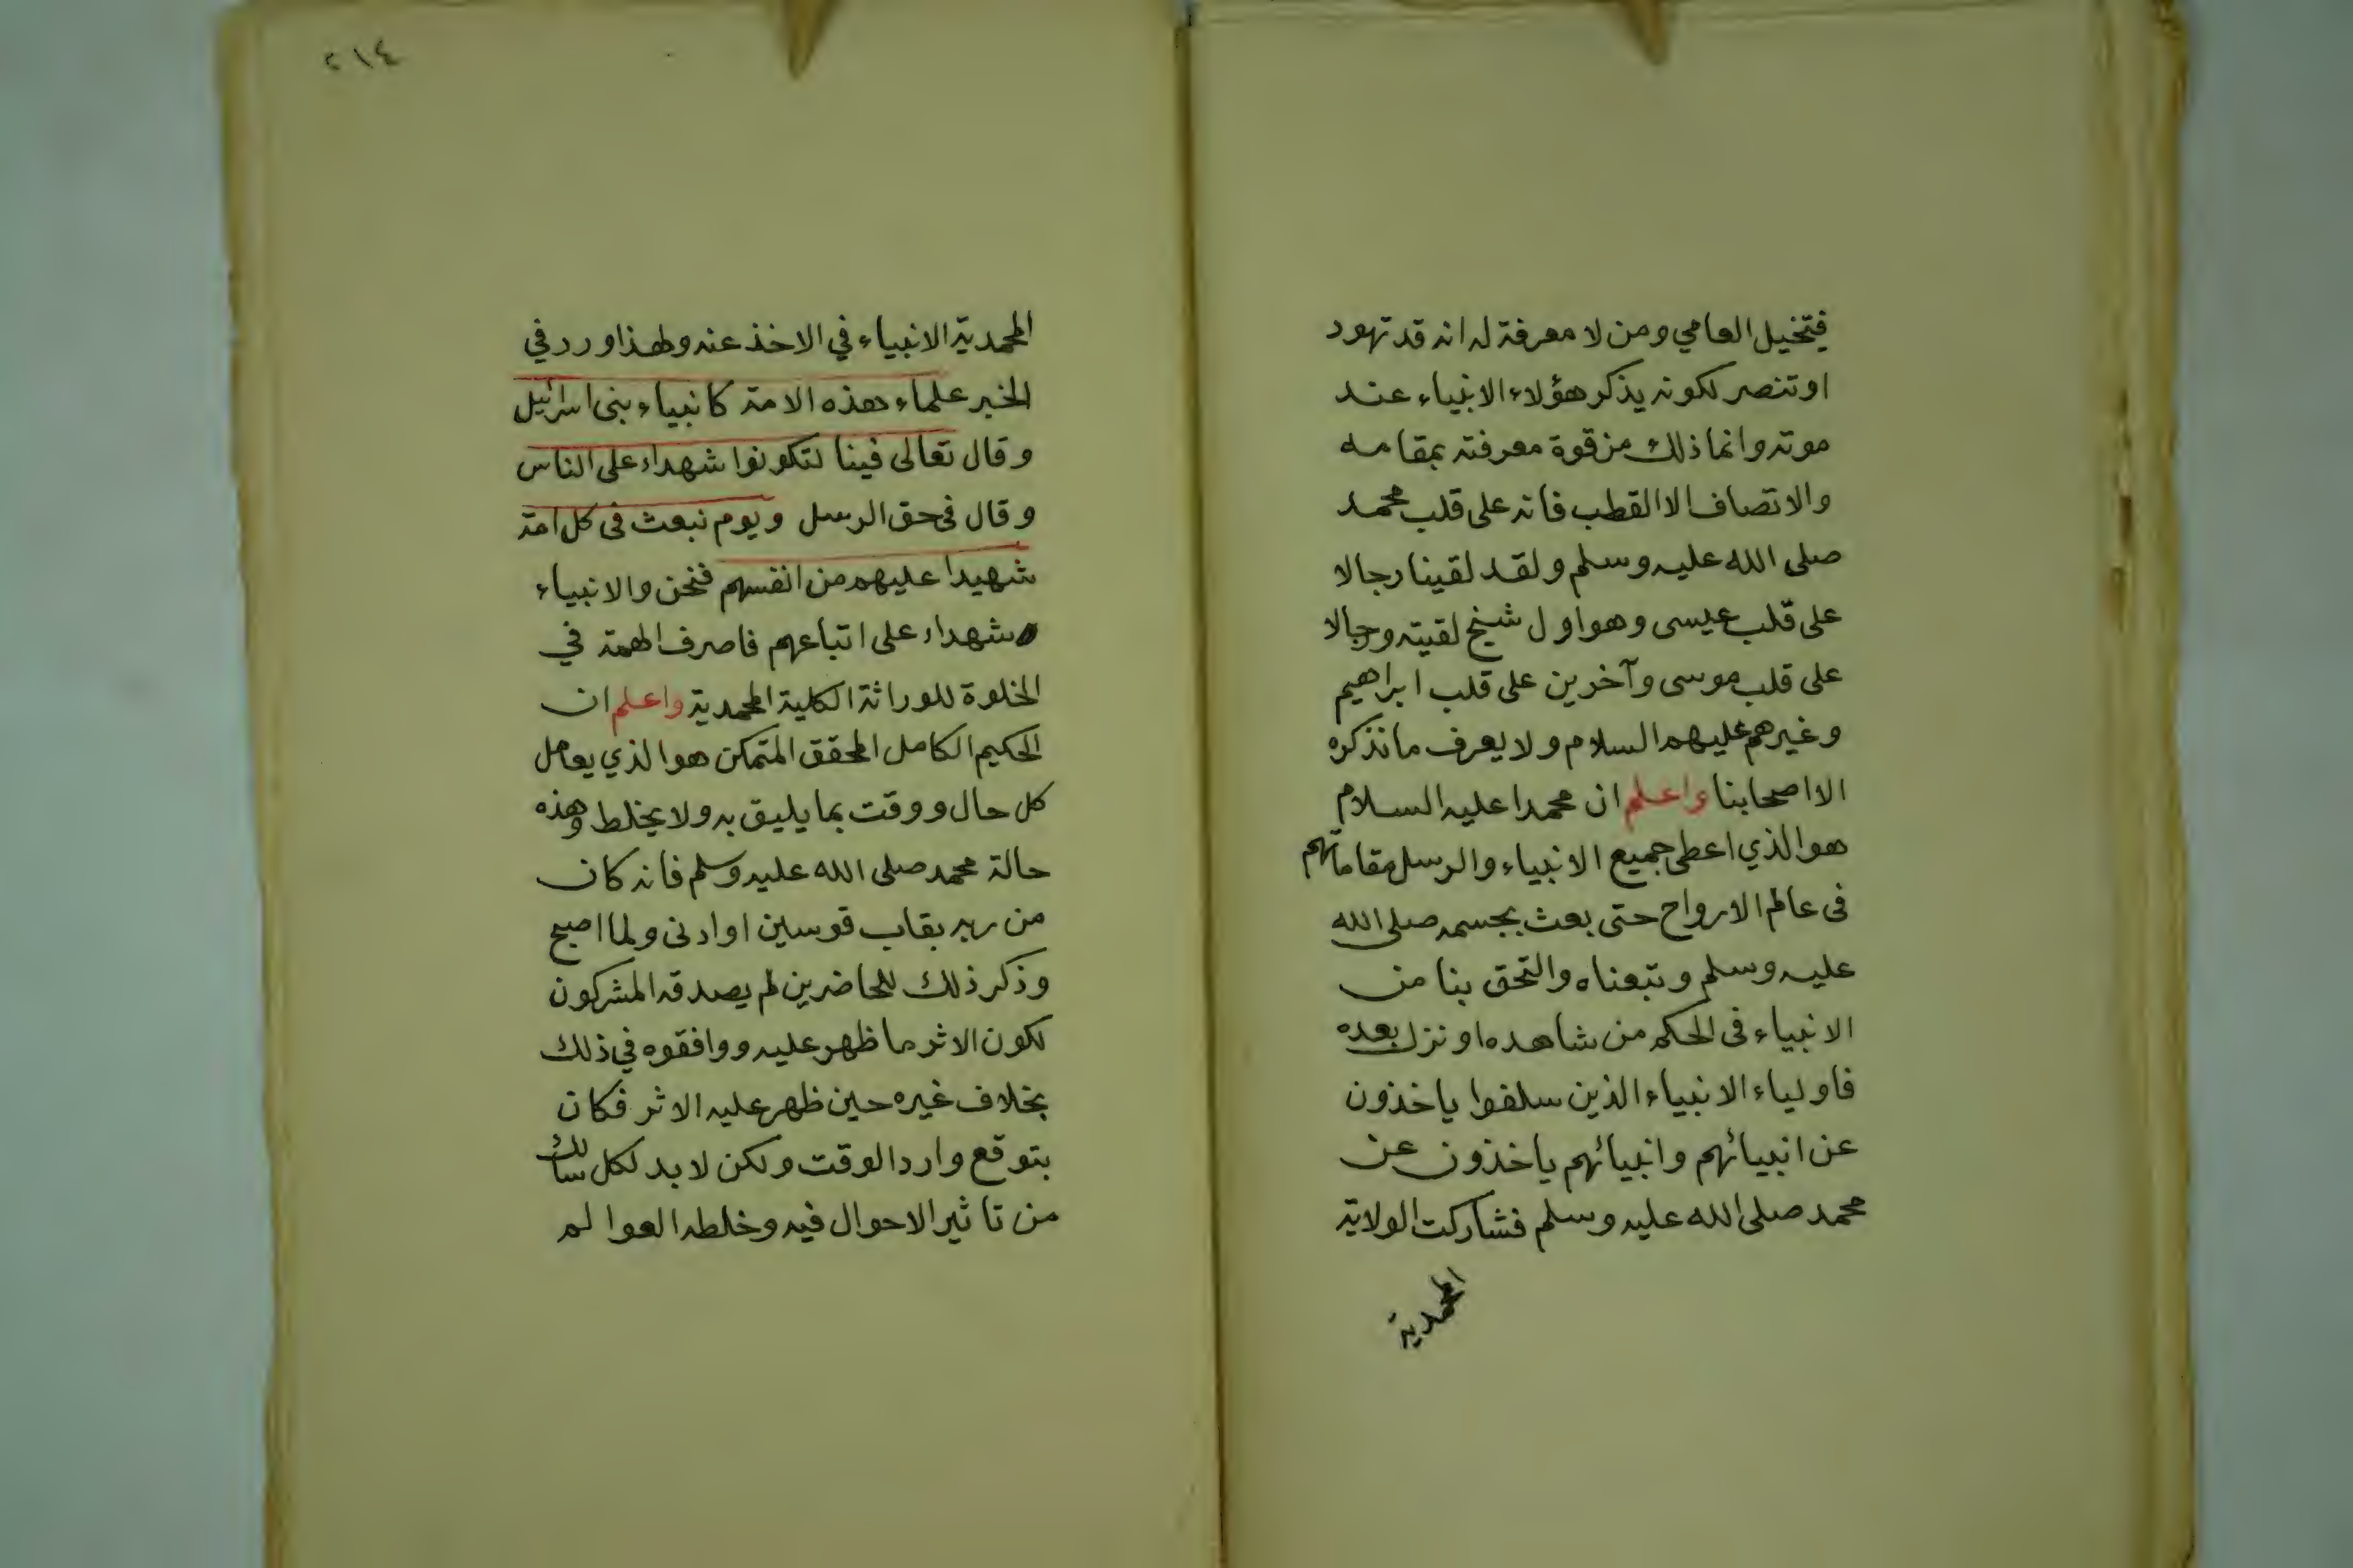 فيتخيل العامي ومن لا معرفة له انه قد تهود
او تنصر لكونه يذكر هؤلاء الانبياء عند
موته وانما ذلك من قوة معرفته بمقامه
والاتصاف الا القطب فانه على قلب محمد
صلى الله عليه وسلم ولقد لقينا رجالا
على قلب عيسى وهو اول شيخ لقيته ورجالا
على قلب موسى وآخرين على قلب ابراهيم
وغيرهم عليهم السلام ولا يعرف ما نذكره
الا اصحابنا واعلم ان محمدا عليه السلام
هو الذي اعطى جميع الانبياء والرسل مقاماتهم
فى عالم الارواح حتى بعث بجسمه صلى الله
عليه وسلم وتبعناه والتحق بنا من
الانبياء فى الحكم من شاهده او نزل بعده
فاولياء الانبياء الذين سلفوا ياخذون
عن انبيائهم وانبيائهم ياخذون عن
محمد صلى الله عليه وسلم فشاركت الولاية
المحمدية
٢١٤
المحمدية الانبياء في الاخذ عنه ولهذا ورد في
الخبر علماء هذه الامة كانبياء بنى اسرائيل
وقال تعالى فينا لتكونوا شهداء على الناس
وقال فى حق الرسل ويوم نبعث فى كل امة
شهيدا عليهم من انفسهم فنحن والانبياء
شهداء على اتباعهم فاصرف الهمة في
الخلوة للوراثة الكلية المحمدية واعلم ان
الحكيم الكامل المحقق المتمكن هو الذي يعامل
كل حال ووقت بما يليق به ولا يخلط وهذه
حالة محمد صلى الله عليه وسلم فانه كان
من ربه بقاب قوسين او ادنى ولما اصبح
وذكر ذلك للحاضرين لم يصدقه المشركون
لكون الاثر ما ظهر عليه ووافقوه في ذلك
بخلاف غيره حين ظهر عليه الاثر فكان
بتوقع وارد الوقت ولكن لا بد لكل سالك
من تاثير الاحوال فيه وخلطه العوالم